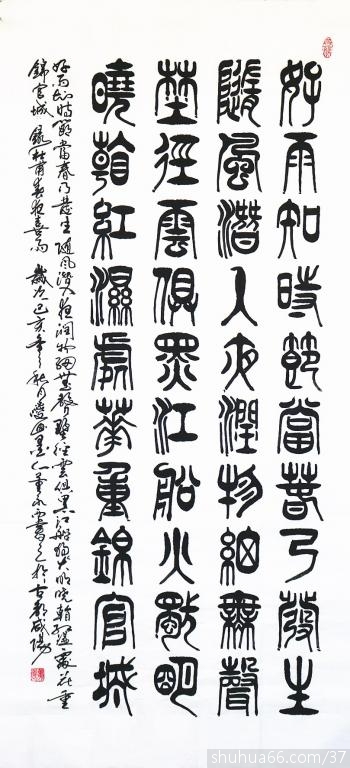 好雨知時節當春乃發生
隨風潛入夜潤物細無聲
埜徑雲俱黑江船火獨朙
曉看紅濕處華重錦官城
好雨知時節當春乃發生隨風潛入夜潤物細無聲野徑雲俱黑江船獨火明曉看紅濕處花重
錦官城 錄杜甫春夜喜雨 歲次己亥年之秋月墨人董永書之於古都咸陽
shuhua66.com/37